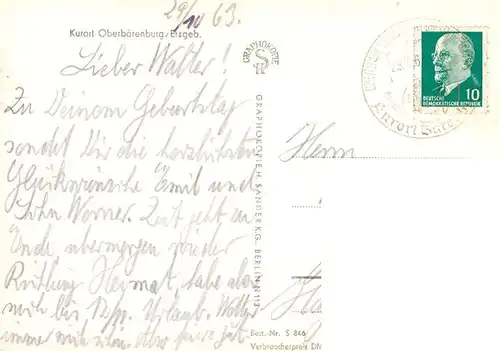 29/10 63.
Kurort Oberbärenburg/Erzgeb.
Lieber Walter!
Zu Deinem Geburtstag
sendet Dir die herzlichsten
Glückwünsche Emil und
Sohn Werner. Zeit geht zu
Ende übermorgen wieder
Richtung Heimat, habe aber
noch bis Urlaub. Wetter
immer noch schön. Also feiere gut
GRAPHOKOPIE
GRAPHOKOPIE H. SANDER K.G. BERLIN N 113
Herrn
DEUTSCHE
DEMOKRATISCHE REPUBLIK
10
Kurort
Best.-Nr. S 846
Verbraucherpreis DM